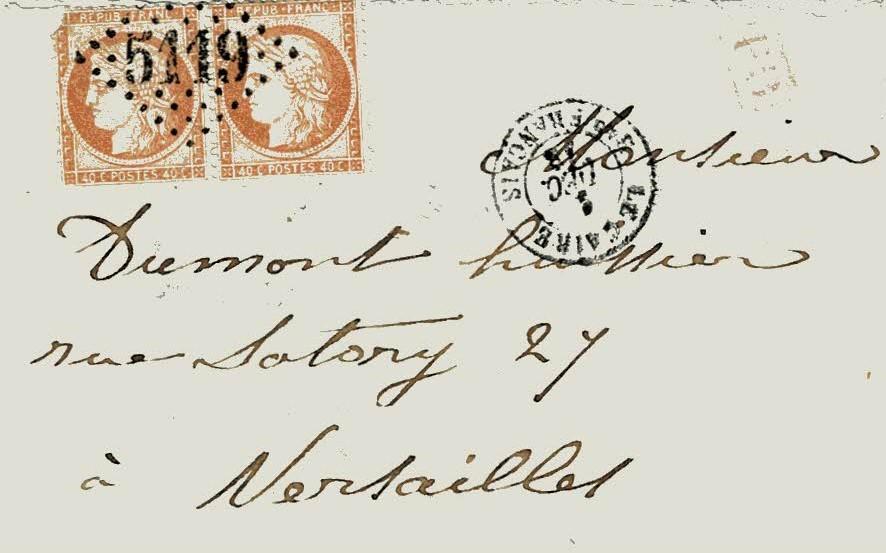 REPUB·FRANC REPUB·FRANC
5119
40 C POSTES 40 C 40 C POSTES 40 C
LE CAIRE
Monsieur
Dumont huissier
rue Satory 27
à Versailles